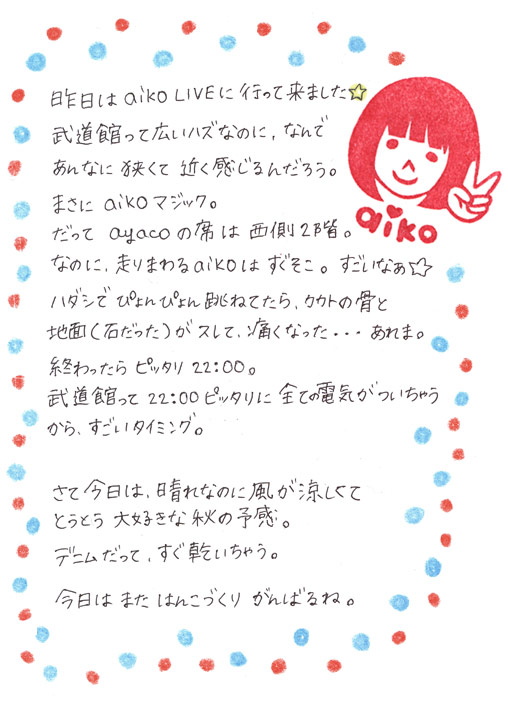 昨日は aiko LIVEに 行って来ました☆
武道館って広いハズなのに、なんで
あんなに 狭くて 近く感じるんだろう。
まさに aikoマジック。
だって ayacoの席は 西側2階。
なのに、走りまわるaikoは すぐそこ。すごいなぁ☆
ハダシで ぴょんぴょん 跳ねてたら、カカトの骨と
地面(石だった)がスレて、痛くなった・・・あれま。
終わったら ピッタリ 22:00。
武道館って 22:00ピッタリに 全ての電気がついちゃう
から、すごいタイミング。
さて今日は、晴れなのに風が涼しくて
とうとう 大好きな 秋の予感。
デニムだって、すぐ乾いちゃう。
今日は また はんこづくり がんばるね。
aiko